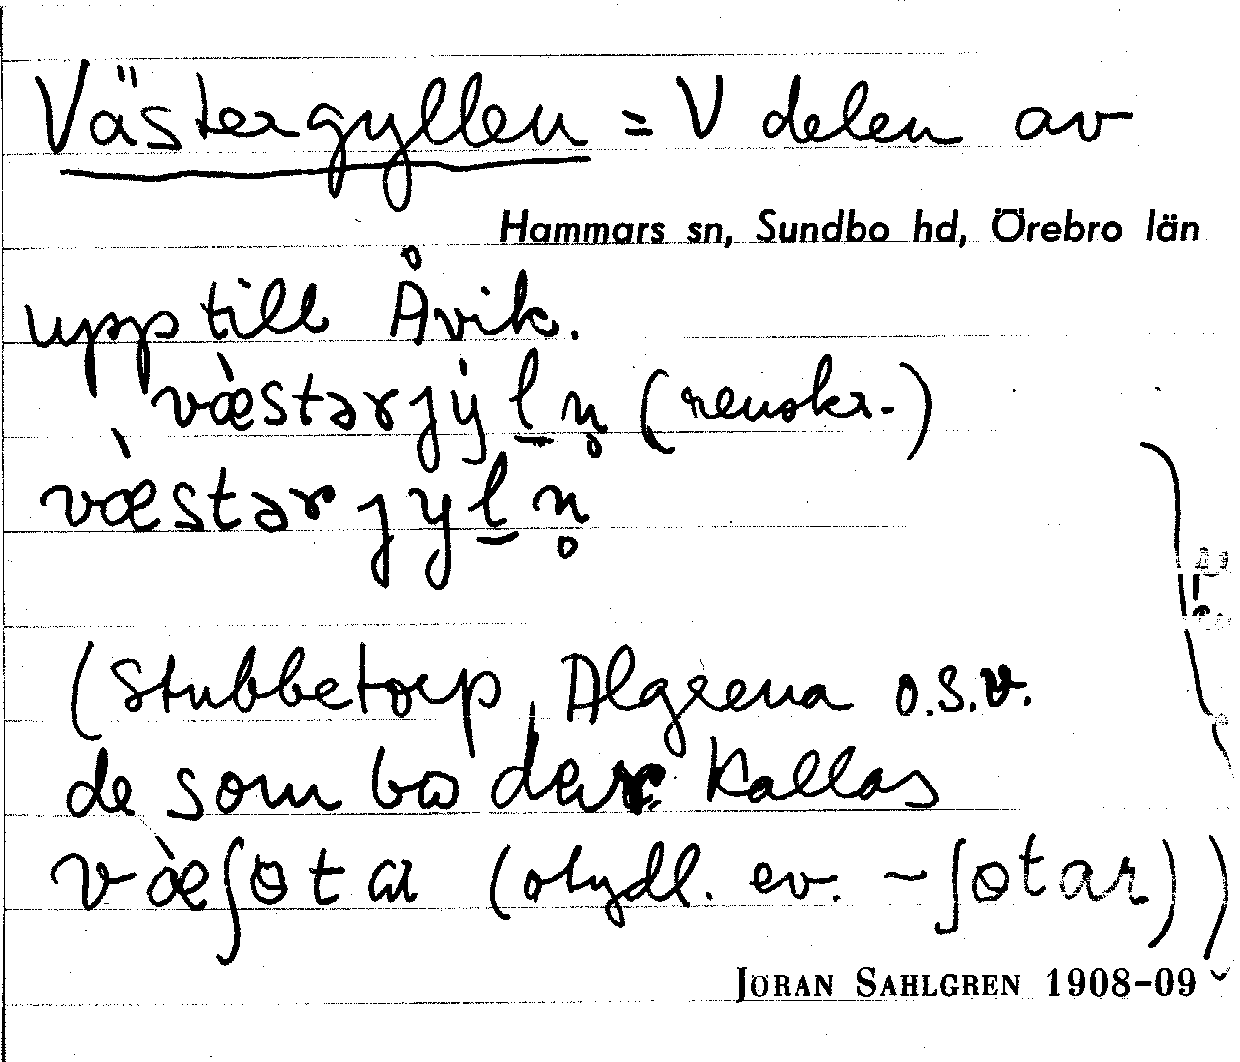 Västergyllen = V delen av
Hammars sn, Sundbo hd, Örebro län
upp till Åvik.
væ̀stərjẏl̠n̥ (renskr.)
væ̀stərjyl̠n̥
(Stubbetorp, Algrena o.s.v.
de som bo där kallas
(otydl. ev.
JÖRAN SAHLGREN 1908-09